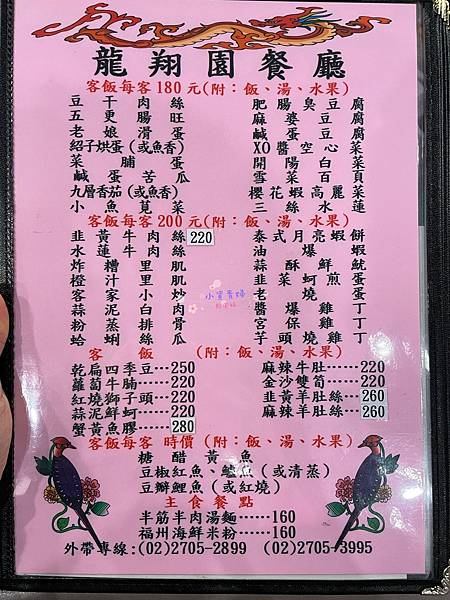 龍翔園餐廳
客飯每客180元(附：飯、湯、水果)
豆干肉絲 肥腸臭豆腐
五更腸旺 麻婆豆腐
老娘滑蛋 鹹蛋豆腐
紹子烘蛋(或魚香) XO醬空心菜
菜脯蛋 開陽白菜
鹹蛋苦瓜 雪菜百頁
九層香茄(或魚香) 櫻花蝦高麗菜
小魚莧菜 三絲水蓮
客飯每客200元(附：飯、湯、水果)
韭黃牛肉絲220 泰式月亮蝦餅
水蓮牛肉絲 油爆蝦
炸糟里肌 蒜酥鮮魷
橙汁里肌 韭菜蚵煎蛋
客家小炒 老燒蛋
蒜泥白肉 醬爆雞丁
粉蒸排骨 宮保雞丁
蛤蜊絲瓜 芋頭燒雞丁
客飯 (附：飯、湯、水果)
乾扁四季豆…250 麻辣牛肚……220
蘿蔔牛腩……220 金沙雙筍……220
紅燒獅子頭…220 韭黃羊肚絲…260
蒜泥鮮蚵……220 麻辣羊肚絲…260
蟹黃魚膠……280
客飯每客 時價(附：飯、湯、水果)
糖醋黃魚
豆椒紅魚、鱸魚(或清蒸)
豆瓣鯉魚(或紅燒)
主食餐點
半筋半肉湯麵……160
福州海鮮米粉……160
外帶專線:(02)2705-2899 (02)2705-3995